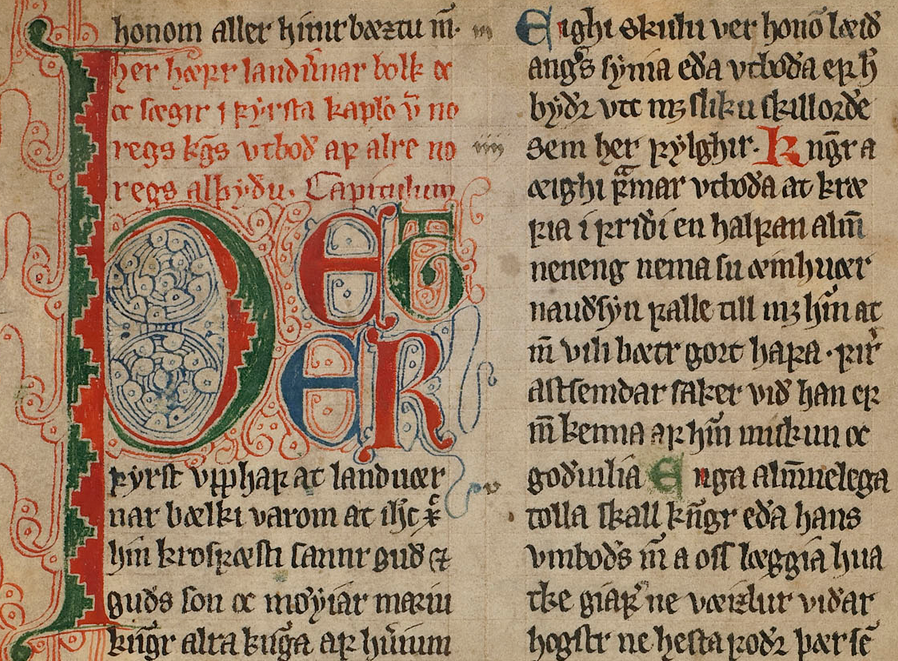 honom aller hinir bæztu m̄.
her hæfr landūnar bolk oc
oc sægir i fyrsta kaplo v̄ no
regs kgs vtboð af alre no
regs alþyðu. Capitulum
ÞET
ER
fyrst vpphaf at landuær
nar bælki varom at ihc xr̄
hin krosfæsti sannr guð ⁊
guðs son oc møyiar mariu
kn̄gr allra kun̄ga af hūium
iii
Eighi skulu ver hono læið
angs synia eða vtboða er h̄
byðr vtt mz sliku skillorðe
iiii
sem her fylghir. Kn̄gr a
æighi f̄mar vtboða at kræ
fia i friði en halfan alm̄
neneng nema su æinhuær
nauðsyn falle till mz hm̄ at
m̄ vili bætr gort hafa. fir̄
astsemdar saker við han er
m̄ kenna af hm̄ miskun oc
v
goðuilia Enga alm̄nelega
tolla skall kn̄gr eða hans
vmboðs m̄ a oss læggia hua
tke giaf̄ ne væizlur viðar
hogstr ne hesta foðr þær se